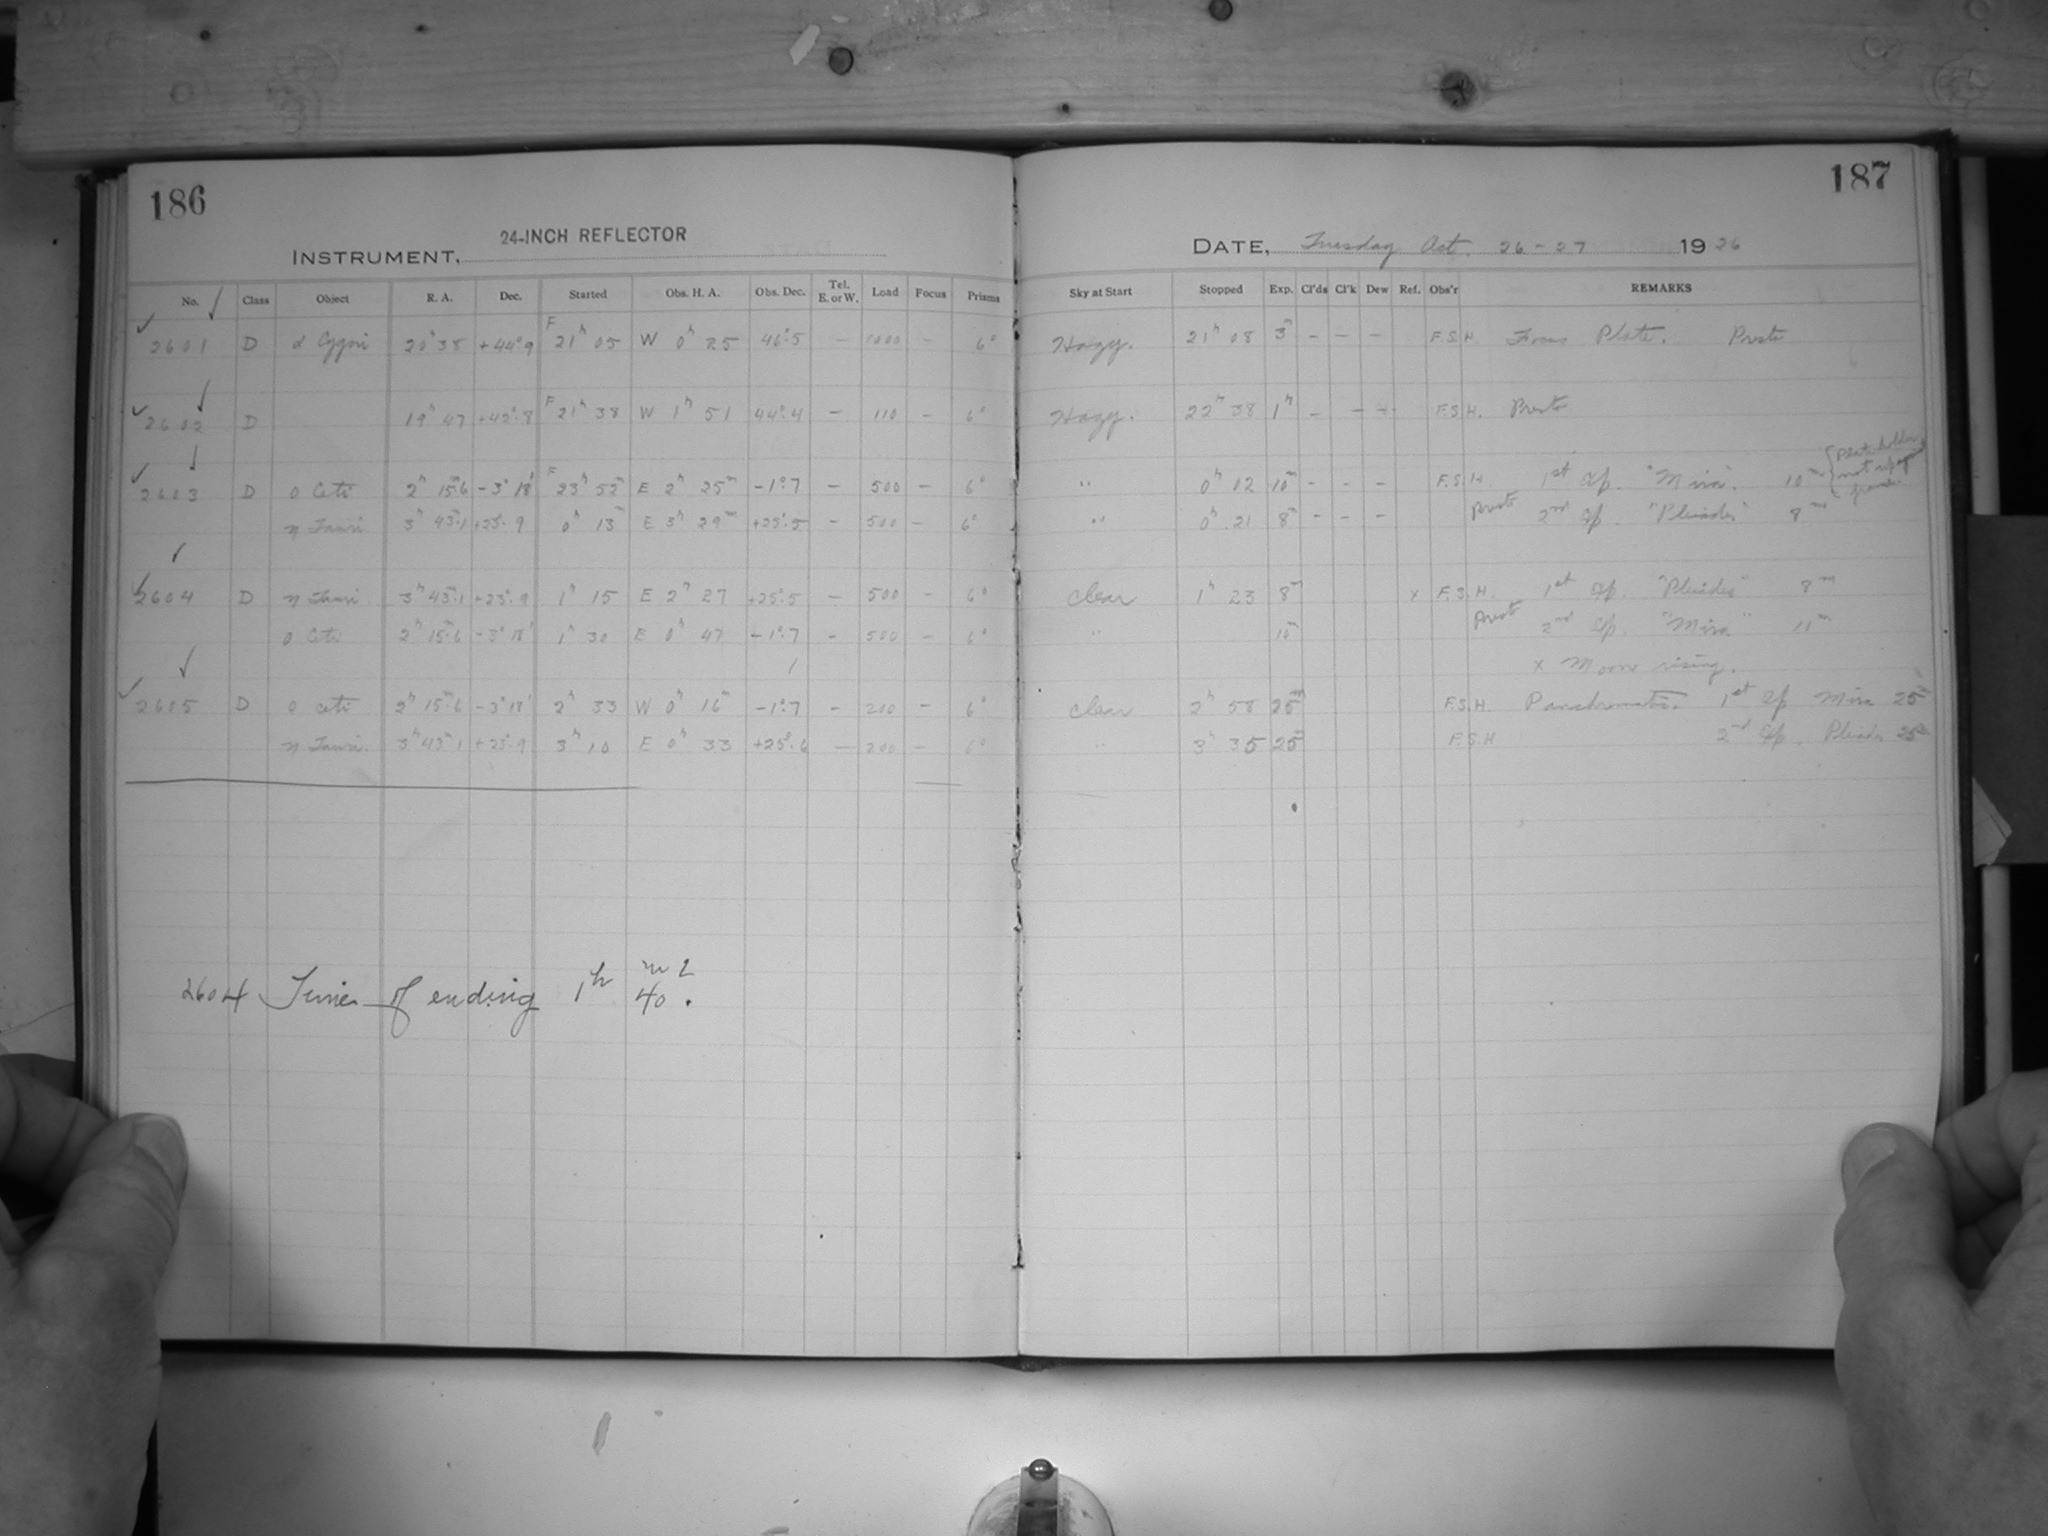 186
24-INCH REFLECTOR
INSTRUMENT,
No. Class Object R. A. Dec. Started Obs. H. A. Obs. Dec. Tel. E. or W. Load Focus Prisms
2601 D α Cygni 20h 38 +44°9 F 21h 05 W 0h 25 46°.5 – 1000 – 6°
2602 D 19h 47 +42°.8 F 21h 38 W 1h 51 44°.4 – 110 – 6°
2603 D o Ceti 2h 15m.6 -3° 18' F 23h 52m E 2h 25m -1°.7 – 500 – 6°
η Tauri 3h 43m.1 +23°.9 0h 13m E 3h 29m +25°.5 – 500 – 6°
2604 D η Tauri 3h 43m.1 +23°.9 1h 15 E 2h 27 +25°.5 – 500 – 6°
o Ceti 2h 15m.6 -3° 18' 1h 30 E 0h 47 -1°.7 – 500 – 6°
2605 D o Ceti 2h 15m.6 -3° 18' 2h 33 W 0h 16m -1°.7 – 200 – 6°
η Tauri 3h 43m.1 +23°.9 3h 10 E 0h 33 +25°.6 – 200 – 6°
2604 Time of ending 1h 40m?
187
DATE, Tuesday Oct. 26-27 1926
Sky at Start Stopped Exp. Cl'ds Cl'k Dew Ref. Obs'r REMARKS
Hazy. 21h 08 3m – – – F.S.H. Focus Plate. Presto
Hazy. 22h 38 1h – – – F.S.H. Presto
" 0h 02 10m – – – F.S.H. 1st Ap. "Mira". 10m { Plate holder not up against
" 0h 21 8m – – – Presto 2nd Ap. "Pleiades" 8m
Clear 1h 23 8m x F.S.H. 1st Ap. "Pleiades" 8m
" 10m Presto 2nd Ap. "Mira" 10m
x Moon rising.
Clear 2h 58 25m F.S.H. Panchromatic. 1st Ap Mira 25m
" 3h 35 25m F.S.H 2nd Ap. Pleiades 25m